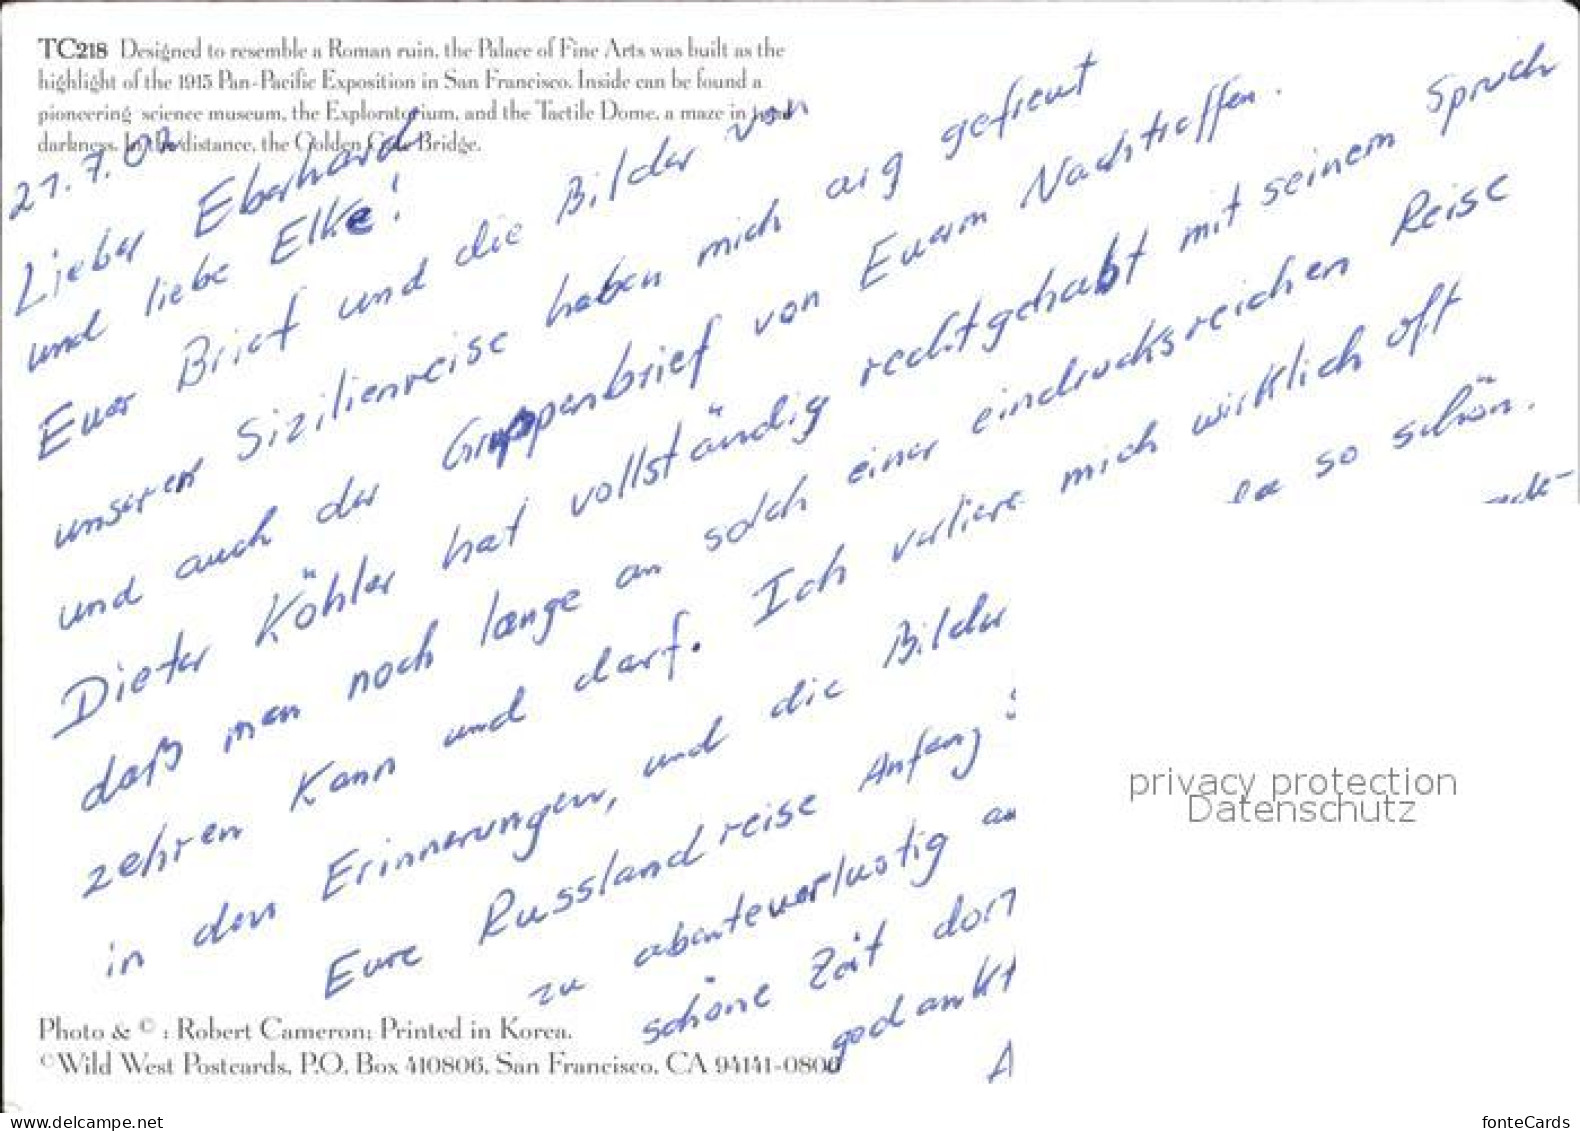 TC218 Designed to resemble a Roman ruin, the Palace of Fine Arts was built as the
highlight of the 1915 Pan-Pacific Exposition in San Francisco. Inside can be found a
pioneering science museum, the Exploratorium, and the Tactile Dome, a maze in total
darkness. In the distance, the Golden Gate Bridge.
21.7.02
Lieber Eberhard
und liebe Elke!
Euer Brief und die Bilder von
unserer Sizilienreise haben mich arg gefreut
und auch der Gruppenbrief von Euerm Nachtreffen.
Dieter Köhler hat vollständig rechtgehabt mit seinem Spruch
daß man noch lange an solch einer eindrucksreichen Reise
zehren kann und darf. Ich verliere mich wirklich oft
in den Erinnerungen, und die Bilder so schön.
Eure Russlandreise Anfang
zu abenteuerlustig
schöne Zeit dort
gedankt
A
Photo & © : Robert Cameron; Printed in Korea.
©Wild West Postcards, P.O. Box 410806, San Francisco, CA 94141-0806
privacy protection
Datenschutz
www.delcampe.net
fonteCards